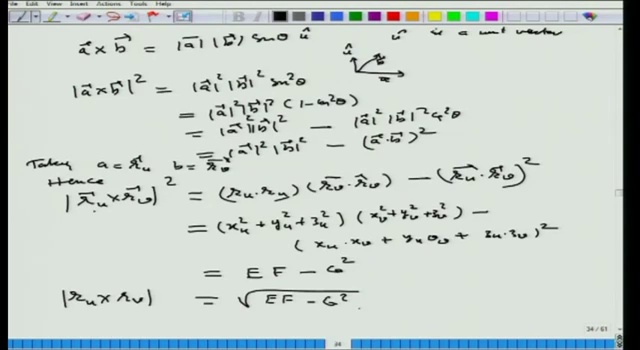 File Edit View Insert Actions Tools Help
a⃗ × b⃗ = |a⃗| |b⃗| sinθ û   û is a unit vector
|a⃗ × b⃗|² = |a⃗|² |b⃗|² sin²θ
= |a⃗|² |b⃗|² (1 - cos²θ)
= |a⃗|² |b⃗|² - |a⃗|² |b⃗|² cos²θ
= |a⃗|² |b⃗|² - (a⃗ · b⃗)²
Taking a = r⃗u b = r⃗v
Hence
|r⃗u × r⃗v|² = (ru · ru) (r⃗v · r⃗v) - (r⃗u · r⃗v)²
= (xu² + yu² + zu²) (xv² + yv² + zv²) -
(xu · xv + yu yv + zu · zv)²
= EF - G²
|ru × rv| = √(EF - G²).
34 / 61
34